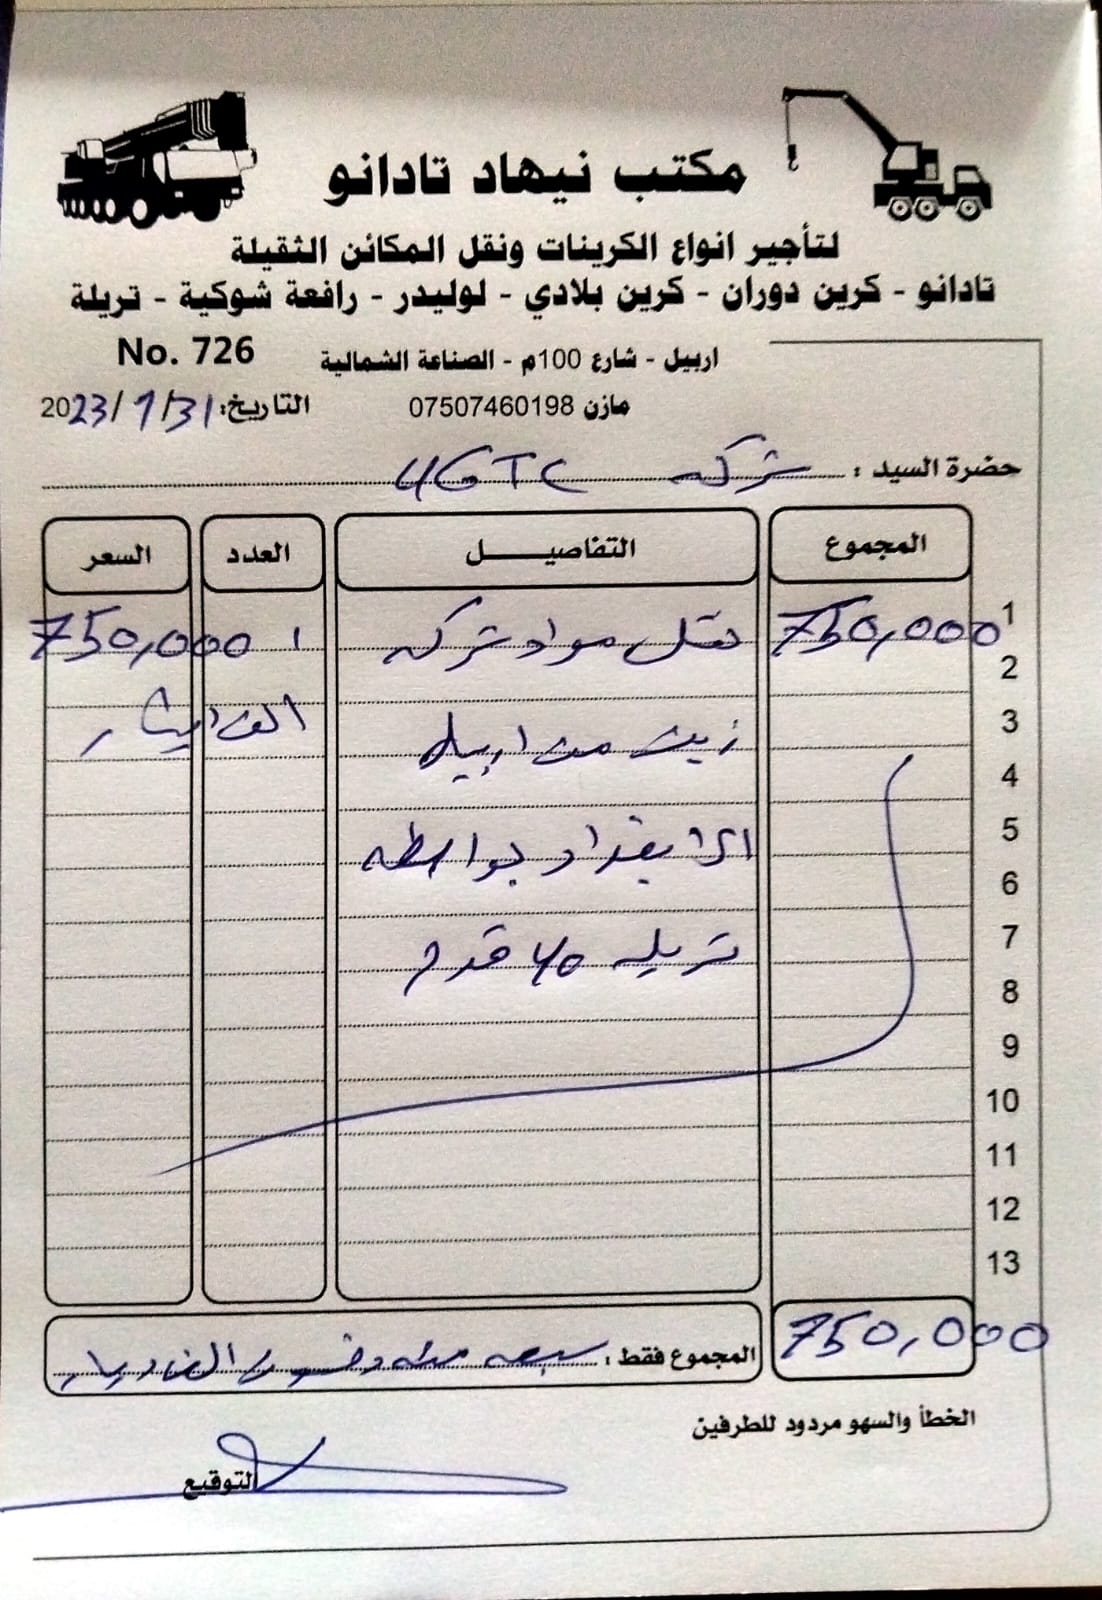 مكتب نيهاد تادانو
لتأجير انواع الكرينات ونقل المكائن الثقيلة
تادانو - كرين دوران - كرين بلادي - لوليدر - رافعة شوكية - تريلة
اربيل - شارع 100م - الصناعة الشمالية
No. 726
مازن 07507460198
التاريخ: 2023/7/31
حضرة السيد : شركه UGTC
المجموع التفاصيل العدد السعر
1 750,000 نقل مواد شركه ١ 750,000
2
3 زيت من اربيل الف دينار
4
5 الى بغداد بواسطه
6
7 تريله ٤٥ قدم
8
9
10
11
12
13
750,000 المجموع فقط : سبعه مئه وخمسون الف دينار
الخطأ والسهو مردود للطرفين
التوقيع